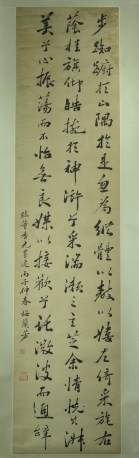 步踟蹰於山隅於是忽焉縱體以敖以嬉左倚采旄右
蔭桂旗攘皓捥於神滸兮采湍瀨之玄芝余情悅其淑
美兮心振蕩而不怡無良媒以接歡兮託微波而通辭
臨董香光墨迹丙子仲春梅蘭芳